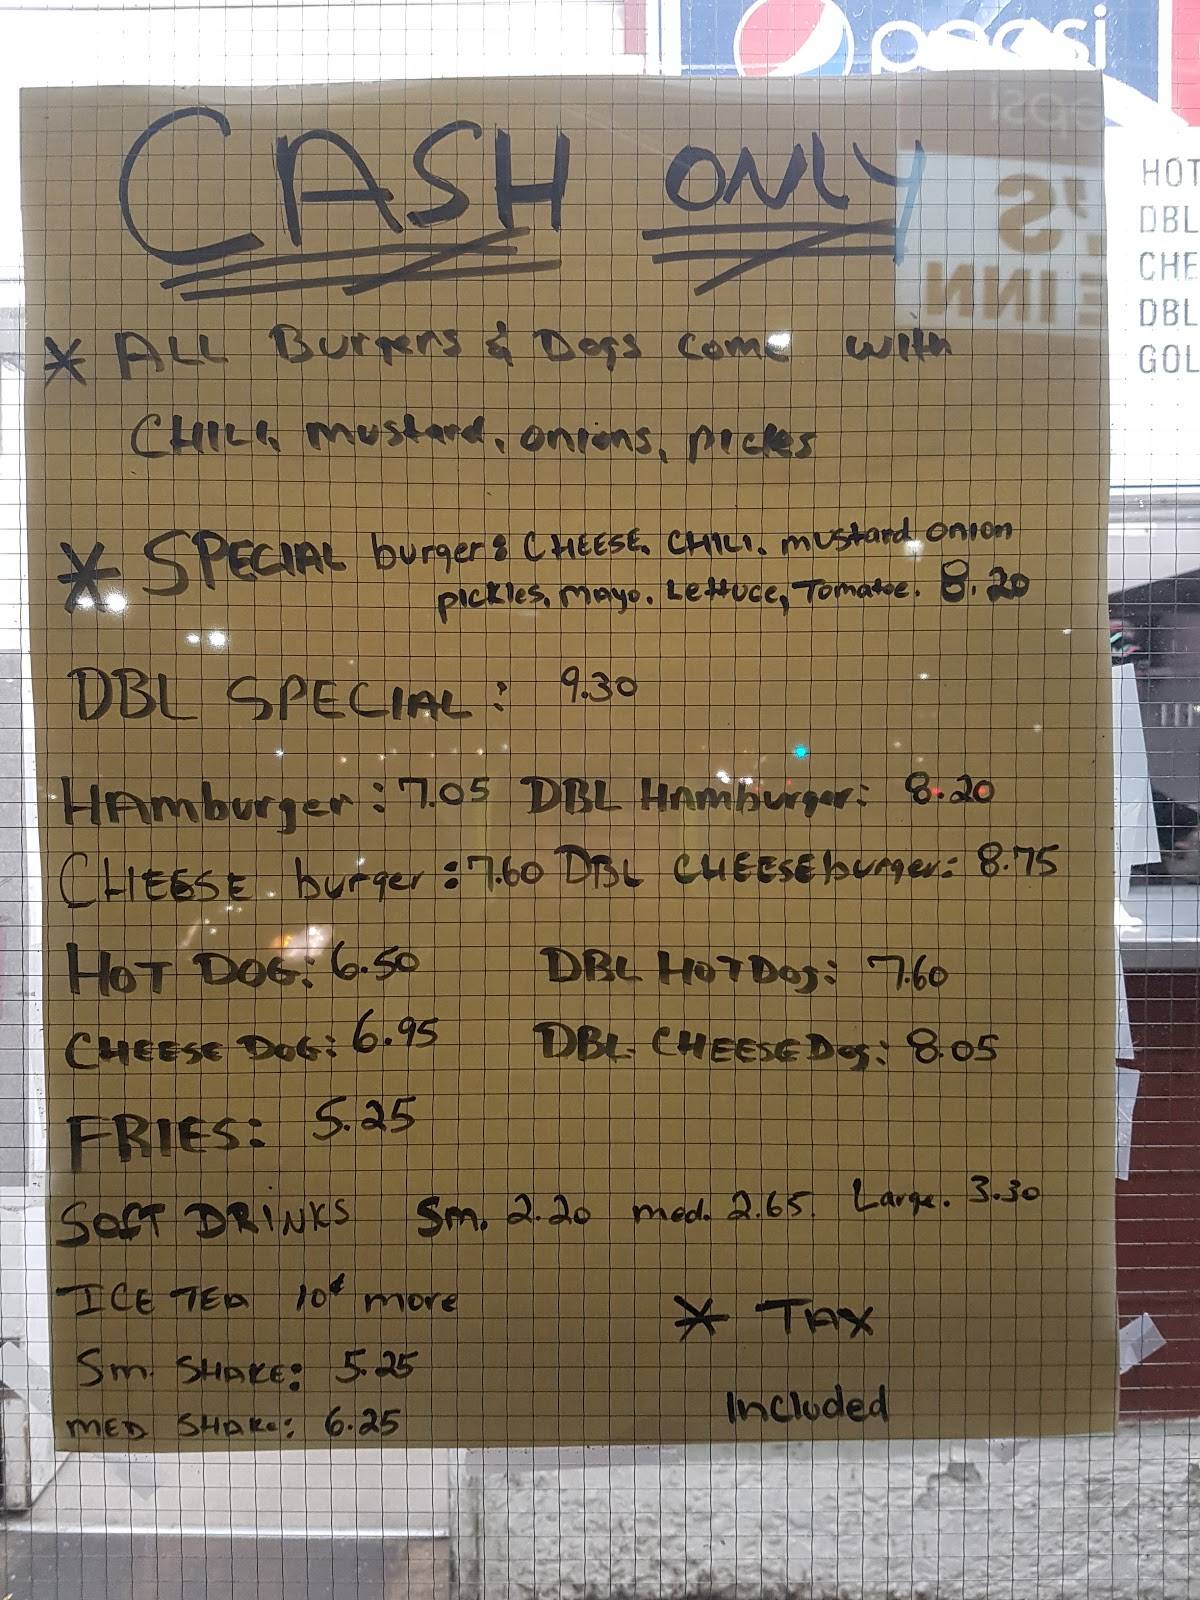 pepsi
CASH ONLY
* ALL Burgers & Dogs come with
CHILI, mustard, onions, pickes
* SPECIAL burger: CHEESE. CHILI. mustard onion
pickles, mayo. Lettuce, Tomatoe. 8.20
DBL SPECIAL: 9.30
HAmburger: 7.05 DBL HAmburger: 8.20
CHEESE burger: 7.60 DBL CHEESEburger: 8.75
HOT DOG: 6.50 DBL HOT Dog: 7.60
CHEESE DOG: 6.95 DBL CHEESE Dog: 8.05
FRIES: 5.25
SOFT DRINKS Sm. 2.20 med. 2.65. Large. 3.30
ICE TEA 10¢ more
* TAX
Included
Sm. SHAKE: 5.25
MED SHAKE: 6.25
HOT
DBL
CHE
DBL
GOL